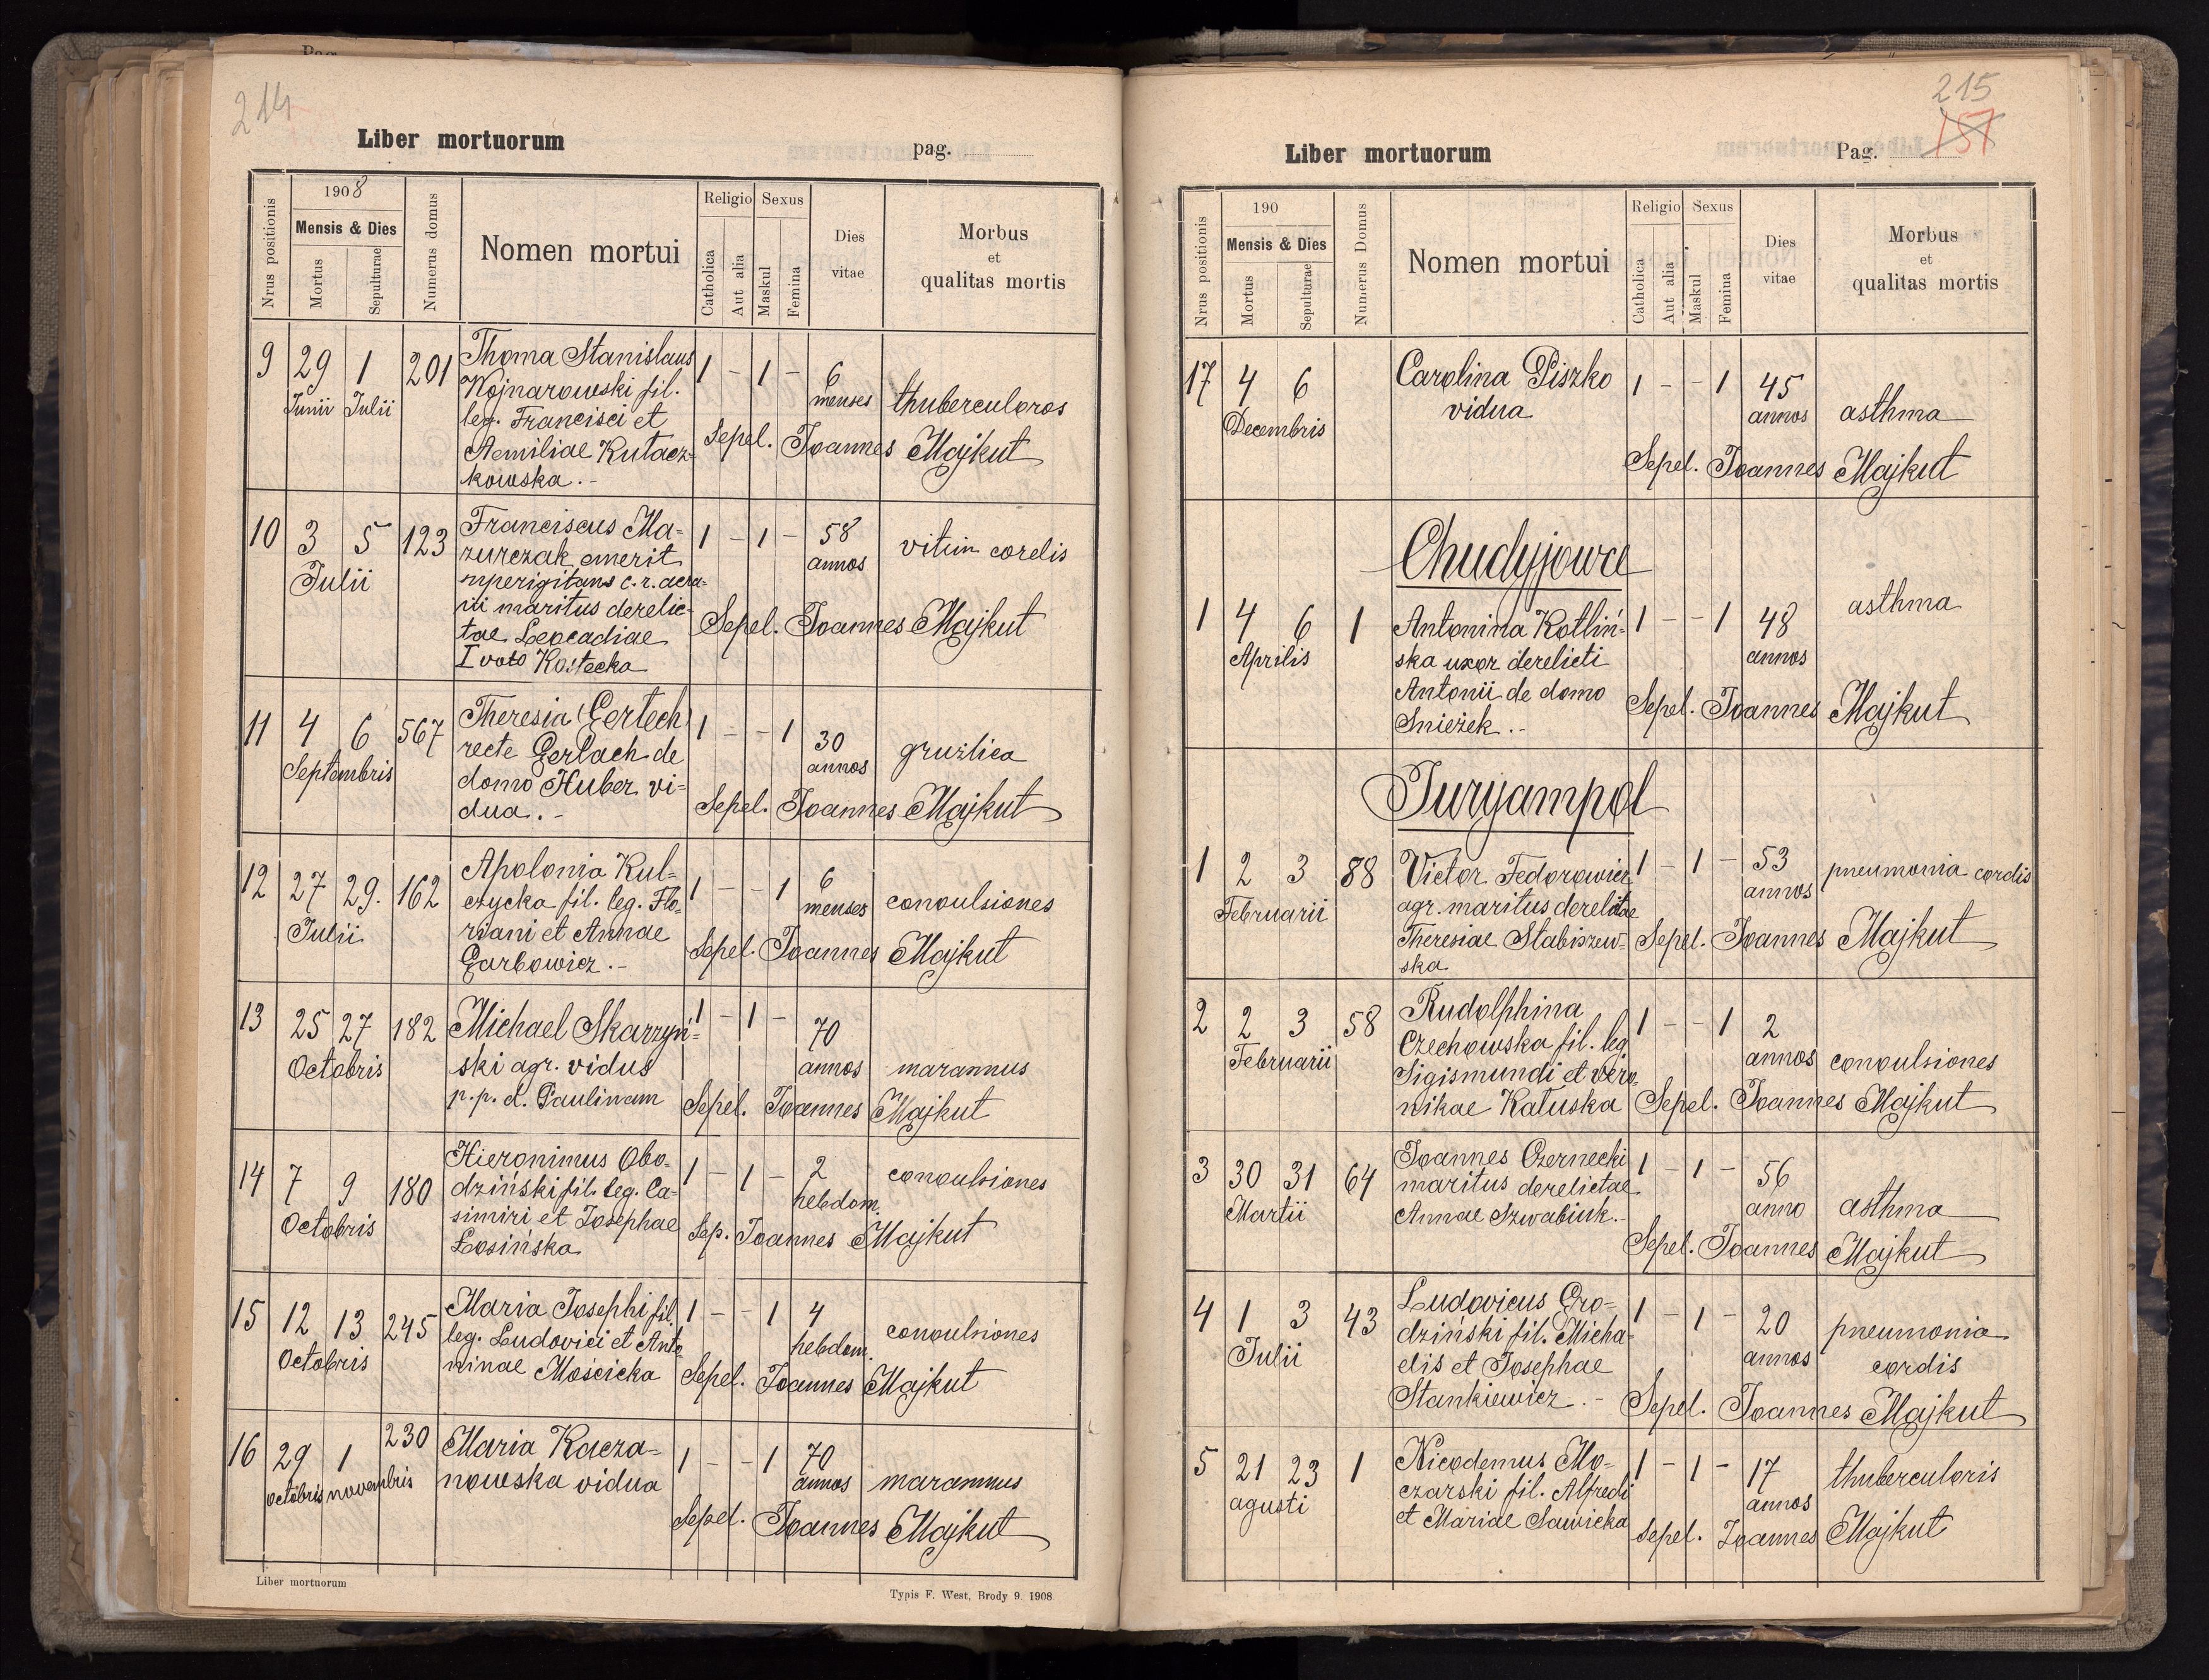 214
Liber mortuorum
pag.
Nrus positionis
1908
Mensis & Dies
Mortus
Sepulturae
Numerus domus
Nomen mortui
Religio
Catholica
Aut alia
Sexus
Maskul
Femina
Dies
vitae
Morbus
et
qualitas mortis
9 29 1 201 Thoma Stanislaus 1 - 1 - 6
Junii Julii Wojnarowski fil. menses thuberculoros
leg. Francisci et
Aemiliae Kutacz- Sepel. Joannes Majkut
kowska.-
10 3 5 123 Franciscus Ma= 1 - 1 - 58 vitim cordis
Julii zurczak emerit annos
c. r. aera=
rii maritus derelic=
tae Leocadiae Sepel. Joannes Majkut
I voto Kostecka
11 4 6 567 Theresia (Gertech) 1 - - 1 30 gruzlica
Septembris recte Gerlach de annos
domo Huber vi=
dua.- Sepel. Joannes Majkut
12 27 29. 162 Apolonia Kul= 1 - - 1 6
Julii czycka fil. leg. Flo= menses convulsiones
riani et Annae
Garbowicz.- Sepel. Joannes Majkut
13 25 27 182 Michael Skarzyń= 1 - 1 - 70
Octobris ski agr. vidus annos marannus
p. p. d. Paulinam Sepel. Joannes Majkut
14 7 9 180 Hieronimus Obo- 1 - 1 - 2 convulsiones
Octobris dziński fil. leg. Ca= hebdom.
simiri et Josephae
Łosińska Sep. Joannes Majkut
15 12 13 245 Maria Josephi fil. 1 - - 1 4 convulsiones
Octobris leg. Ludovici et Anto hebdom.
ninae Mościcka Sepel. Joannes Majkut
16 29 1 230 Maria Kacza= 1 - - 1 70
octobris novembris nowska vidua annos marannus
Sepel. Joannes Majkut
Liber mortuorum
Typis F. West, Brody 9. 1908
215
157
Liber mortuorum
Pag.
Nrus positionis
190
Mensis & Dies
Mortus
Sepulturae
Numerus Domus
Nomen mortui
Religio
Catholica
Aut alia
Sexus
Maskul
Femina
Dies
vitae
Morbus
et
qualitas mortis
17 4 6 Carolina Piszko 1 - - 1 45
Decembris vidua annos asthma
Sepel. Joannes Majkut
Chudyjowce
1 4 6 1 Antonina Kotliń= 1 - - 1 48 asthma
Aprilis ska uxor derelicti annos
Antonii de domo
Snieżek.- Sepel. Joannes Majkut
Juryampol
1 2 3 88 Victor Fedorowicz 1 - 1 - 53 pneumonia cordis
Februarii agr. maritus derelitae annos
Theresiae Stabiszew= Sepel. Joannes Majkut
ska
2 2 3 58 Rudolphina 1 - - 1 2
Februarii Czechowska fil. leg annos convulsiones
Sigismundi et Vero=
nikae Kałuska Sepel. Joannes Majkut
3 30 31 64 Joannes Czernecki 1 - 1 - 56
Martii maritus derelictae anno asthma
Annae Szwabiuk.-
Sepel. Joannes Majkut
4 1 3 43 Ludovicus Gro= 1 - 1 - 20 pneumonia
Julii dziński fil. Micha= annos cordis
elis et Josephae
Stankiewicz.- Sepel. Joannes Majkut
5 21 23 1 Nicodemus Mo- 1 - 1 - 17 thuberculoris
agusti czarski fil. Alfredi annos
et Mariae Sawicka Sepel. Joannes Majkut